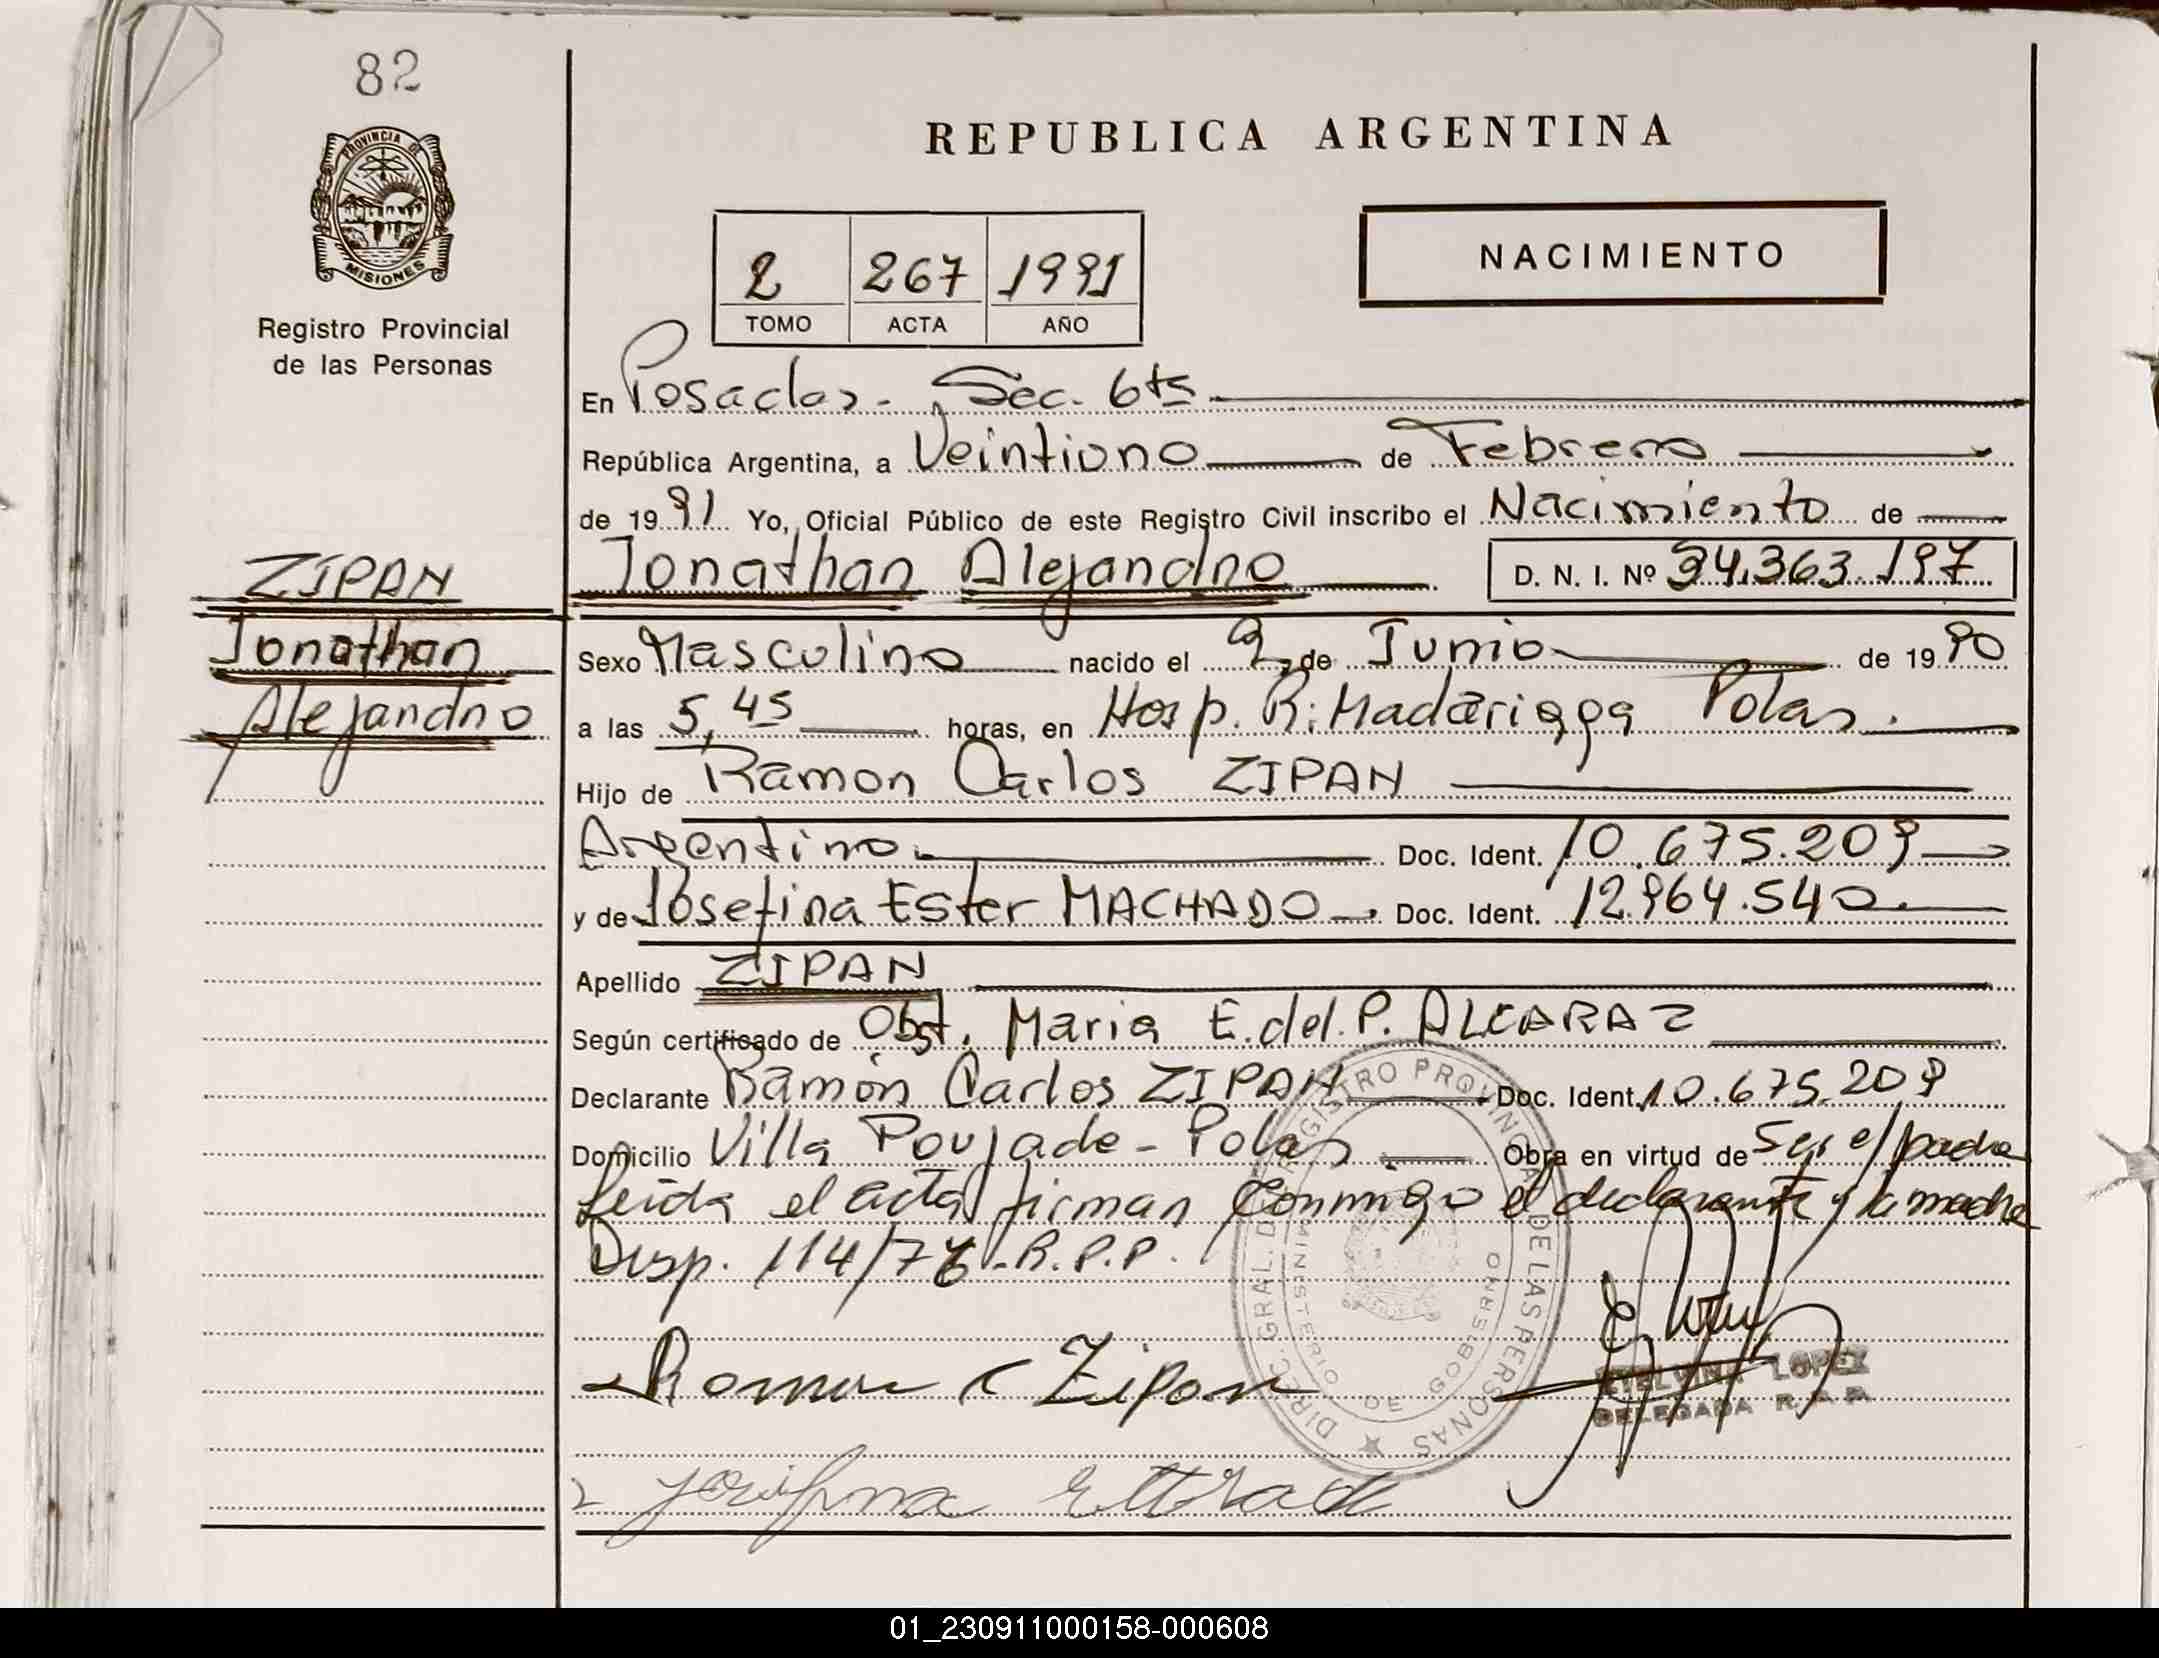 82
PROVINCIA DE
MISIONES
Registro Provincial
de las Personas
REPUBLICA ARGENTINA
NACIMIENTO
2 267 1991
TOMO ACTA AÑO
En Posadas - Sec. 6ta
República Argentina, a Veintiuno de Febrero
de 1991 Yo, Oficial Público de este Registro Civil inscribo el Nacimiento de
ZIPAN
Jonathan
Alejandro
Jonathan Alejandro D. N. I. Nº 34.363.197
Sexo Masculino nacido el 2 de Junio de 1990
a las 5,45 horas, en Hosp. R. Madariaga Pdas.
Hijo de Ramon Carlos ZIPAN
Argentino. Doc. Ident. 10.675.209
y de Josefina Ester MACHADO Doc. Ident. 12.964.540
Apellido ZIPAN
Según certificado de Obst. Maria E. del P. ALCARAZ
Declarante Ramón Carlos ZIPAN Doc. Ident. 10.675.209
Domicilio Villa Poujade - Pdas Obra en virtud de Ser el padre
Leida el acta firman conmigo el declarante y la madre
Disp. 114/76 - R.P.P.
DIREC. GRAL. DEL REGISTRO PROVINCIAL DE LAS PERSONAS
MINISTERIO DE GOBIERNO
Ramon C Zipan
ETELVINA LOPEZ
DELEGADA R.P.P.
Josifina
01_230911000158-000608